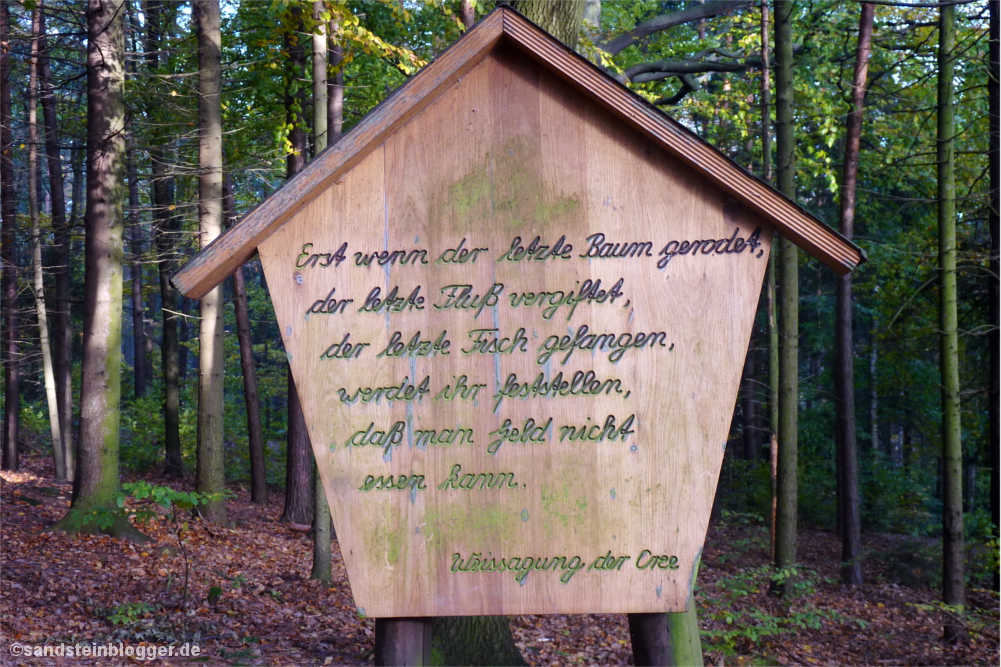 Erst wenn der letzte Baum gerodet,
der letzte Fluß vergiftet,
der letzte Fisch gefangen,
werdet ihr feststellen,
daß man Geld nicht
essen kann.
Weissagung der Cree
©sandsteinblogger.de